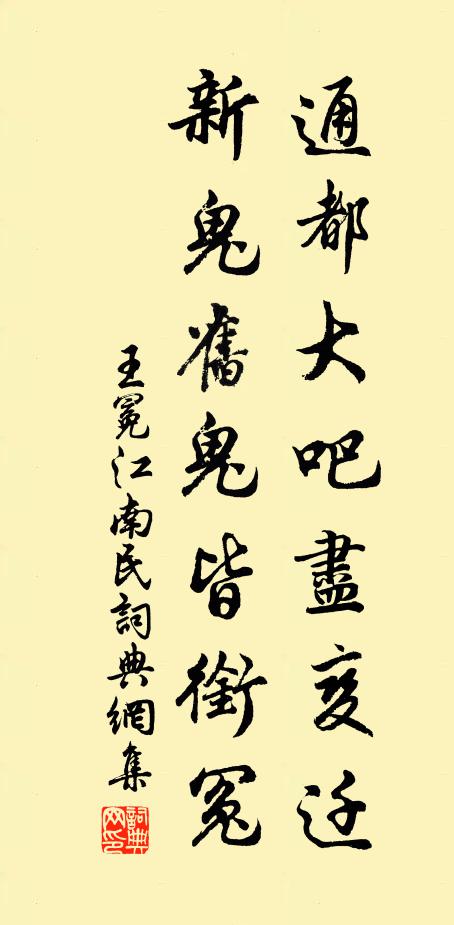 通都大吧盡变迁
新鬼舊鬼皆銜冤
王冕江南民詞典網集
詞典網印